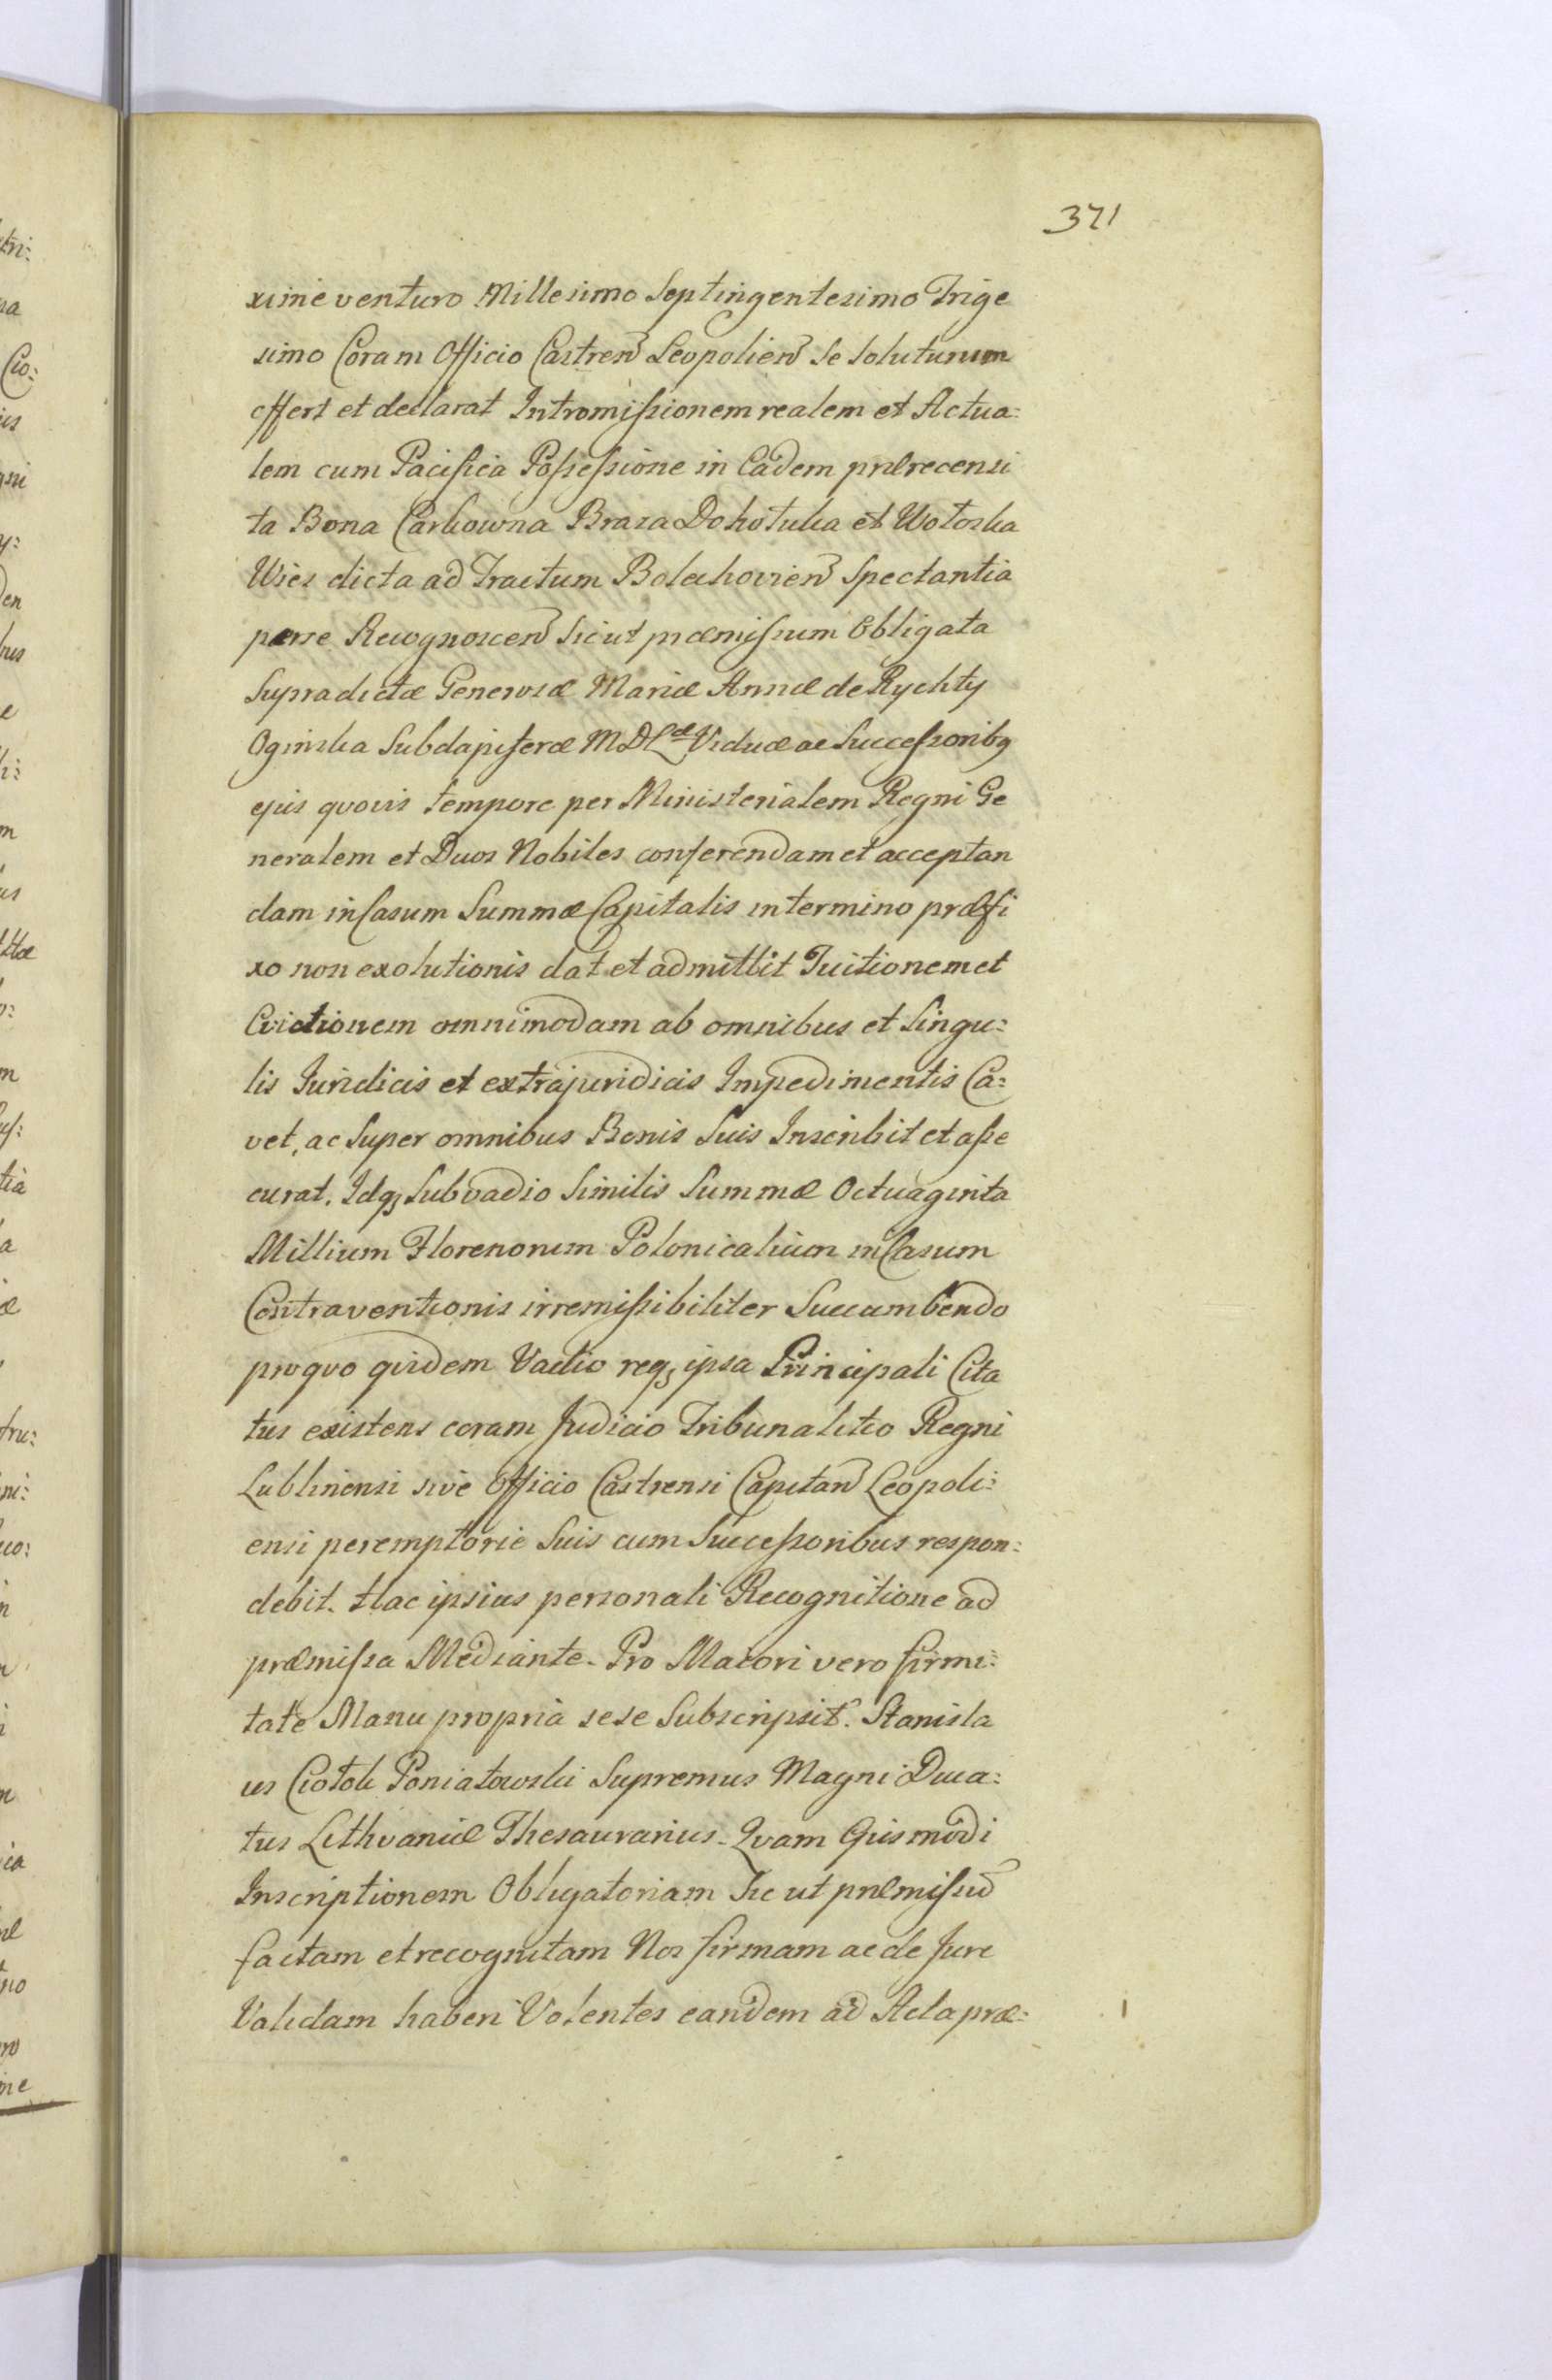 371
xime venturo Millesimo Septingentesimo Trige
simo Coram Officio Castren Leopolien Se Soluturum
offert et declarat Intromissionem realem et Actua:
lem cum Pacifica Possessione in Eadem prærecensi
ta Bona Cerkowna Braza Dohotuka et Wołoska
Wies dicta ad Tractum Bolechovien Spectantia
per se Recognoscen Sicut præmissum Obligata
Supradictæ Generosæ Mariæ Annæ de Rychty
Oginska Subdapiferæ M D Læ Viduæ ac Successoribq
ejus quovis tempore per Ministerialem Regni Ge
neralem et Duos Nobiles conferendam et acceptan
dam in Casum Summæ Capitalis in termino præfi
xo non exolutionis dat et admittit Tuitionem et
Evictionem omnimodam ab omnibus et Singu:
lis Juridicis et extrajuridicis Impedimentis Ca:
vet, ac Super omnibus Bonis Suis Inscribit et asse
curat. Idq Sub vadio Similis Summæ Octuaginta
Millium Florenorum Polonicalium in Casum
Contraventionis irremissibiliter Succumbendo
pro quo quidem Vadio req ipsa Principali Cita
tus existens coram Judicio Tribunalitio Regni
Lublinensi sive Officio Castrensi Capitan Leopoli:
ensi peremptorie Suis cum Successoribus respon:
debit. Hac ipsius personali Recognitione ad
præmissa Mediante. Pro Maiori vero firmi:
tate Manu propria sese Subscripsit. Stanisla
us Ciołek Poniatowski Supremus Magni Duca:
tus Lithvaniæ Thesaurarius. Qvam Ejusmodi
Inscriptionem Obligatoriam Sic ut præmissu
factam et recognitam Nos firmam ac de Jure
Validam haberi Volentes eandem ad Acta præ: